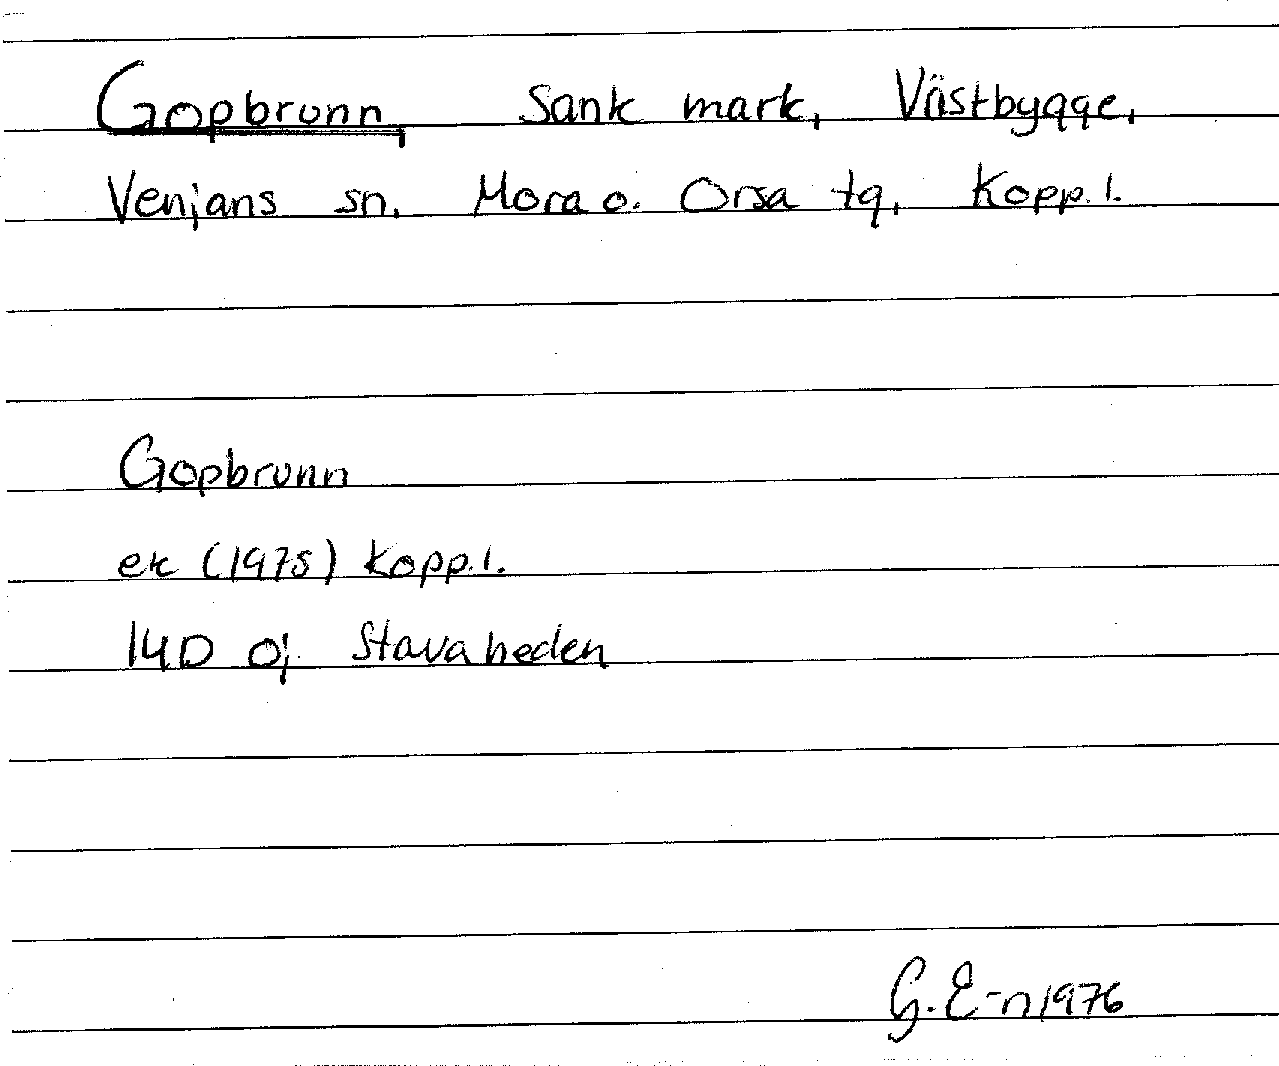 Gopbrunn, Sank mark, Västbygge,
Venjans sn, Mora o. Orsa tg, Kopp. l.
Gopbrunn
ek (1975) Kopp. l.
14D 0j Stavaheden
G. E-n 1976